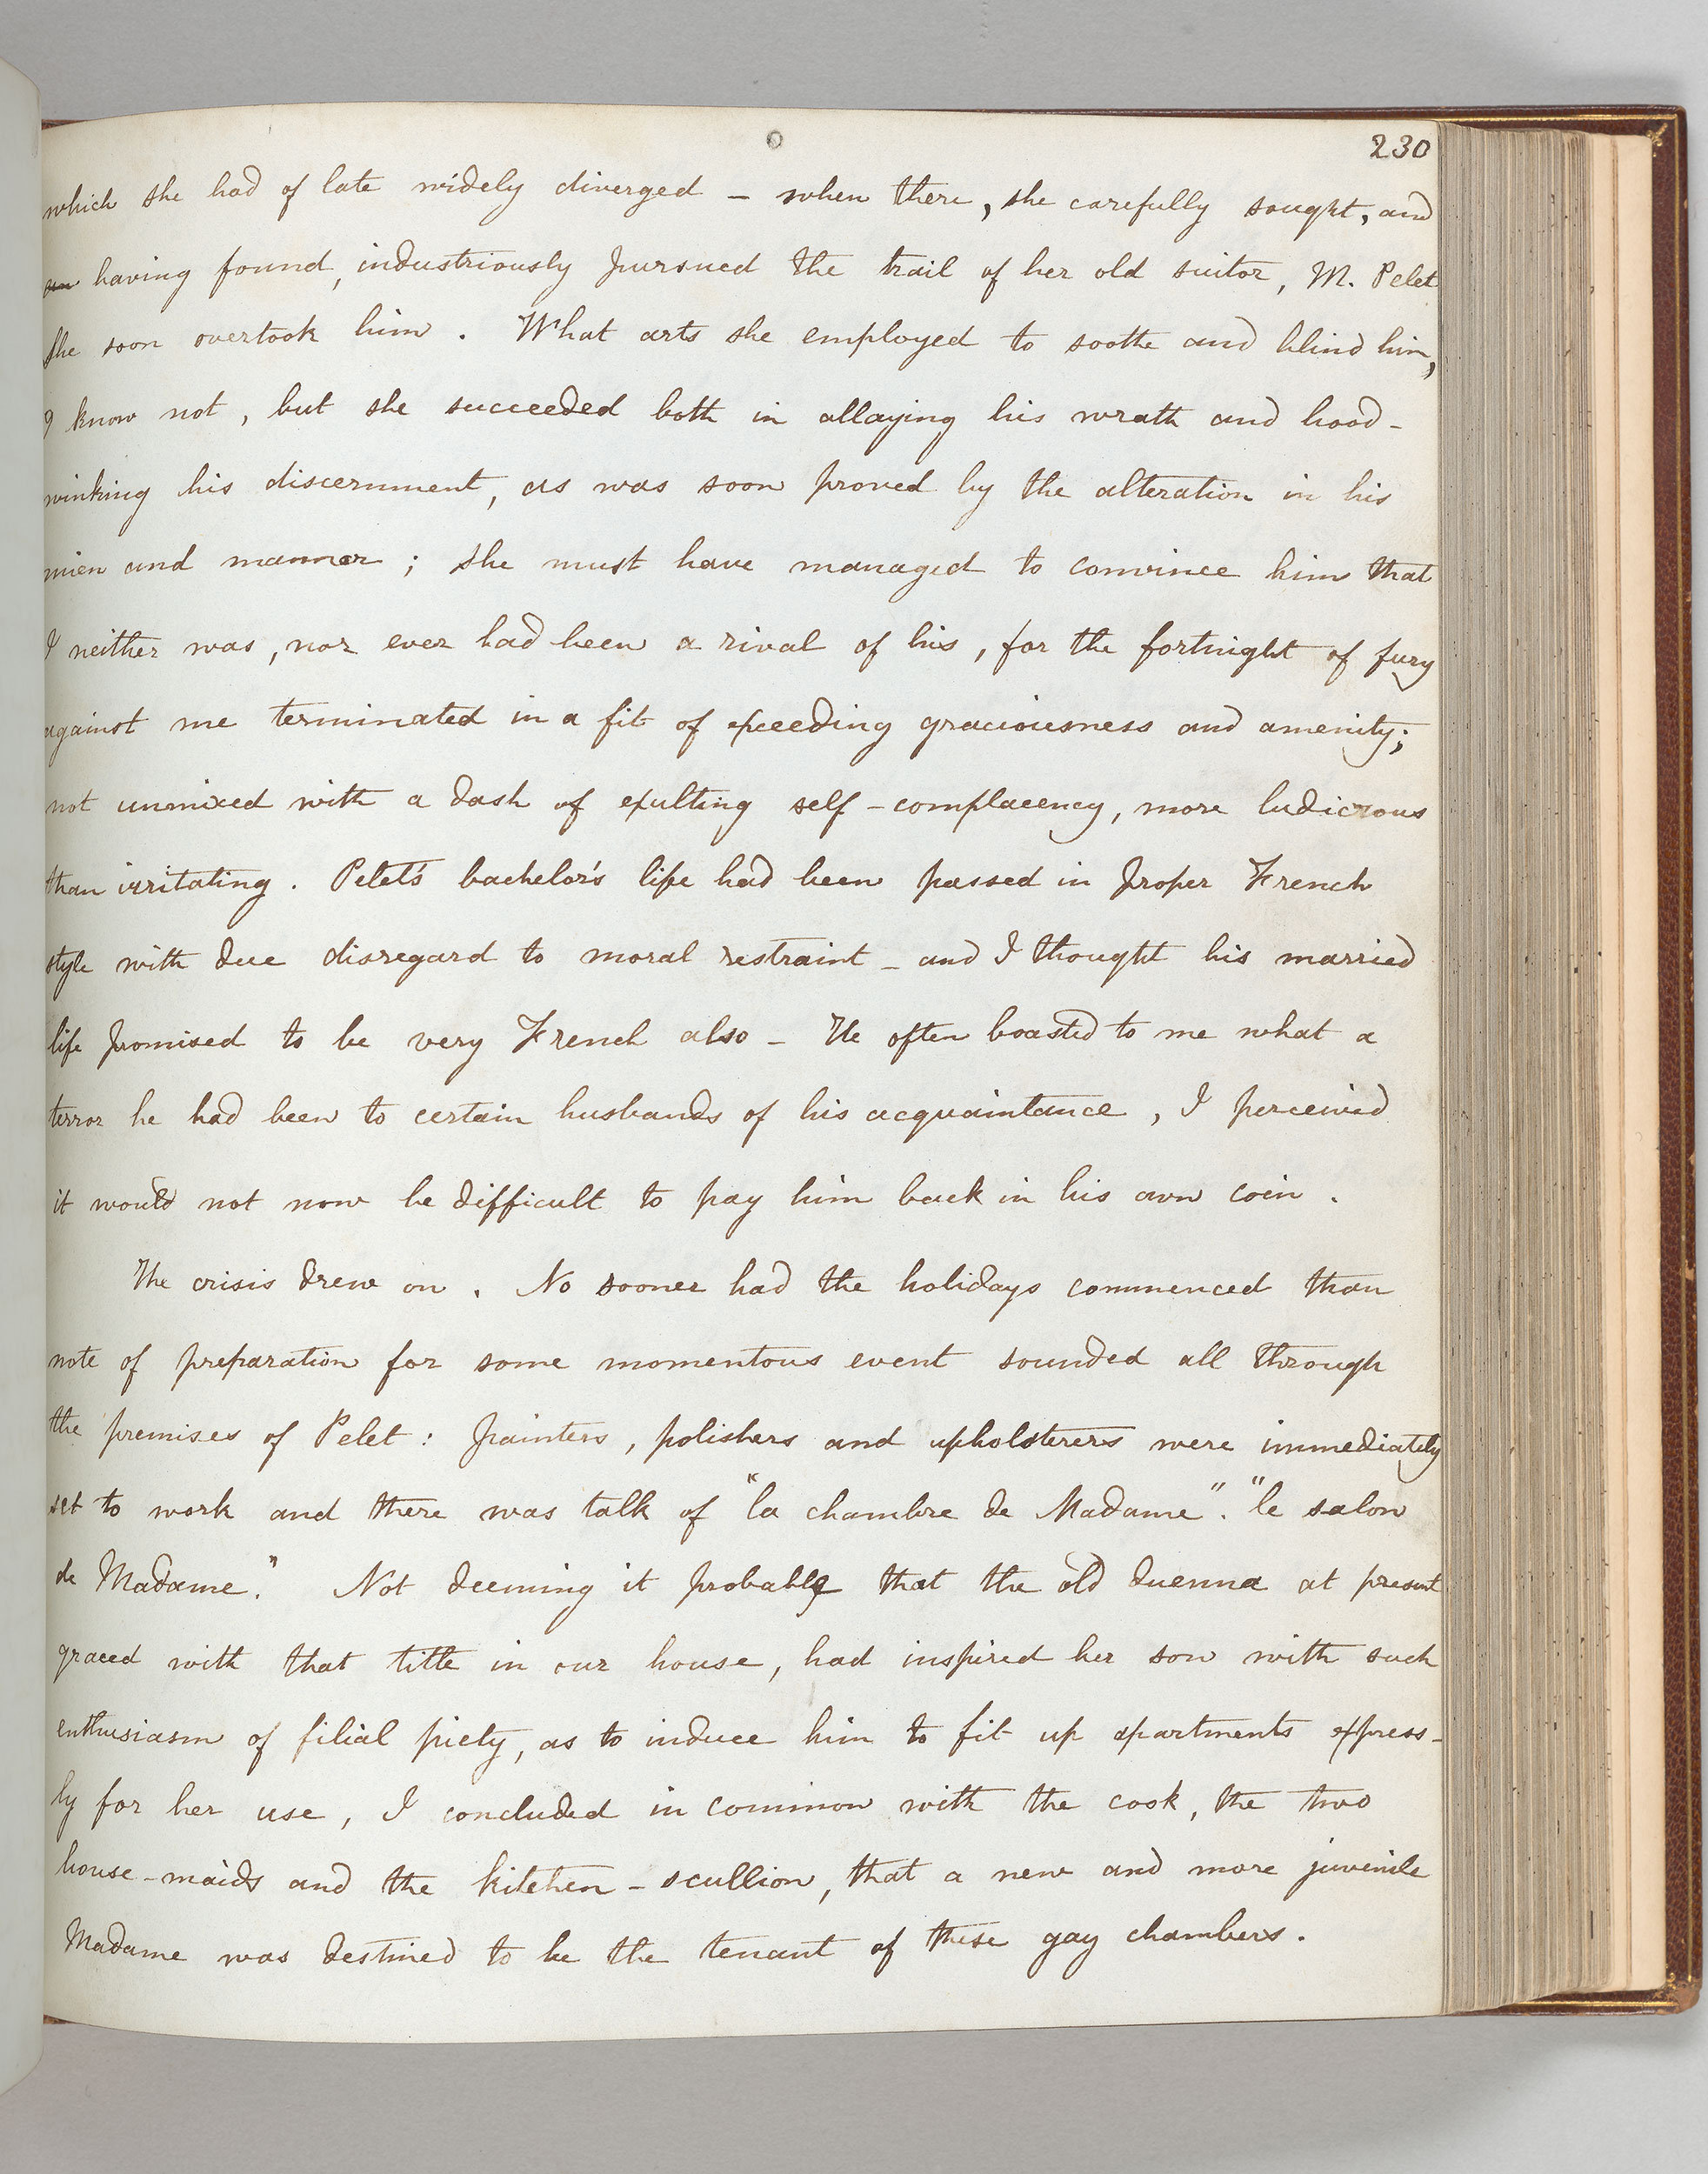 230
which she had of late widely diverged – when there, she carefully sought, and
an having found, industriously pursued the trail of her old suitor, M. Pelet
She soon overtook him. What arts she employed to soothe and blind him,
I know not, but she succeeded both in allaying his wrath and hood-
winking his discernment, as was soon proved by the alteration in his
mien and manner; she must have managed to convince him that
I neither was, nor ever had been a rival of his, for the fortnight of fury
against me terminated in a fit of exceeding graciousness and amenity;
not unmixed with a dash of exulting self-complacency, more ludicrous
than irritating. Pelet's bachelor's life had been passed in proper French
style with due disregard to moral restraint – and I thought his married
life promised to be very French also – He often boasted to me what a
terror he had been to certain husbands of his acquaintance, I perceived
it would not now be difficult to pay him back in his own coin.
The crisis drew on. No sooner had the holidays commenced than
note of preparation for some momentous event sounded all through
the premises of Pelet: painters, polishers and upholsterers were immediately
set to work and there was talk of "la chambre de Madame". "le salon
de Madame." Not deeming it probable that the old duenna at present
graced with that title in our house, had inspired her son with such
enthusiasm of filial piety, as to induce him to fit up apartments express-
ly for her use, I concluded in common with the cook, the two
house-maids and the kitchen-scullion, that a new and more juvenile
Madame was destined to be the tenant of these gay chambers.